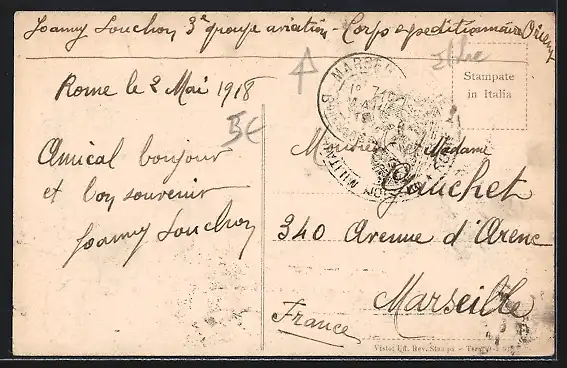 Joanny Souchon 3e groupe aviation - Corps expéditionnaire Orient
Stampate
in Italia
Rome le 2 Mai 1918
3€
Amical bonjour
et bon souvenir
Joanny Souchon
MARSEILLE
MILITAIRE
Monsieur et Madame
Gauchet
340 Avenue d'Arenc
Marseille
France
Visto: Uff. Rev. Stampa -